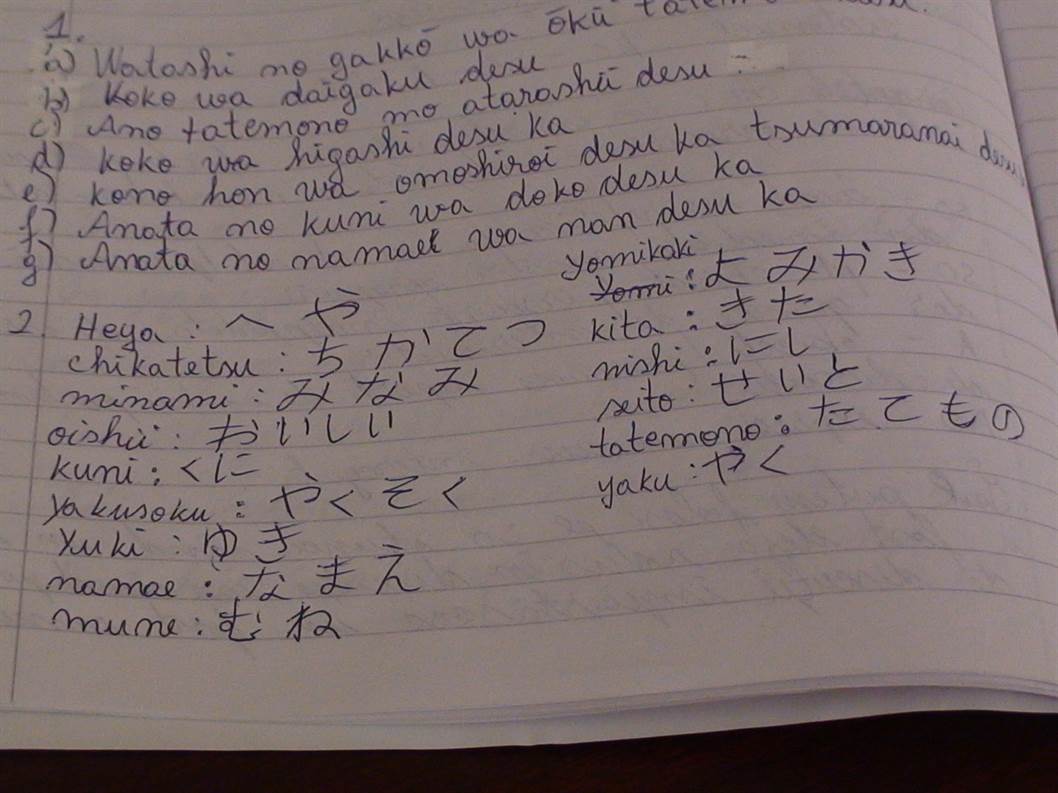 1.
a) Watashi no gakkō wa ōkii
b) Koko wa daigaku desu
c) Ano tatemono mo atarashii desu
d) koko wa higashi desu ka
e) kono hon wa omoshiroi desu ka tsumaranai desu
f) Anata no kuni wa doko desu ka
g) Anata no namae wa nan desu ka
2. Heya : へや
chikatetsu : ちかてつ
minami : みなみ
oishii : おいしい
kuni : くに
yakusoku : やくそく
Yuki : ゆき
namae : なまえ
mune : むね
yomikaki : よみかき
kita : きた
nishi : にし
seito : せいと
tatemono : たてもの
yaku : やく